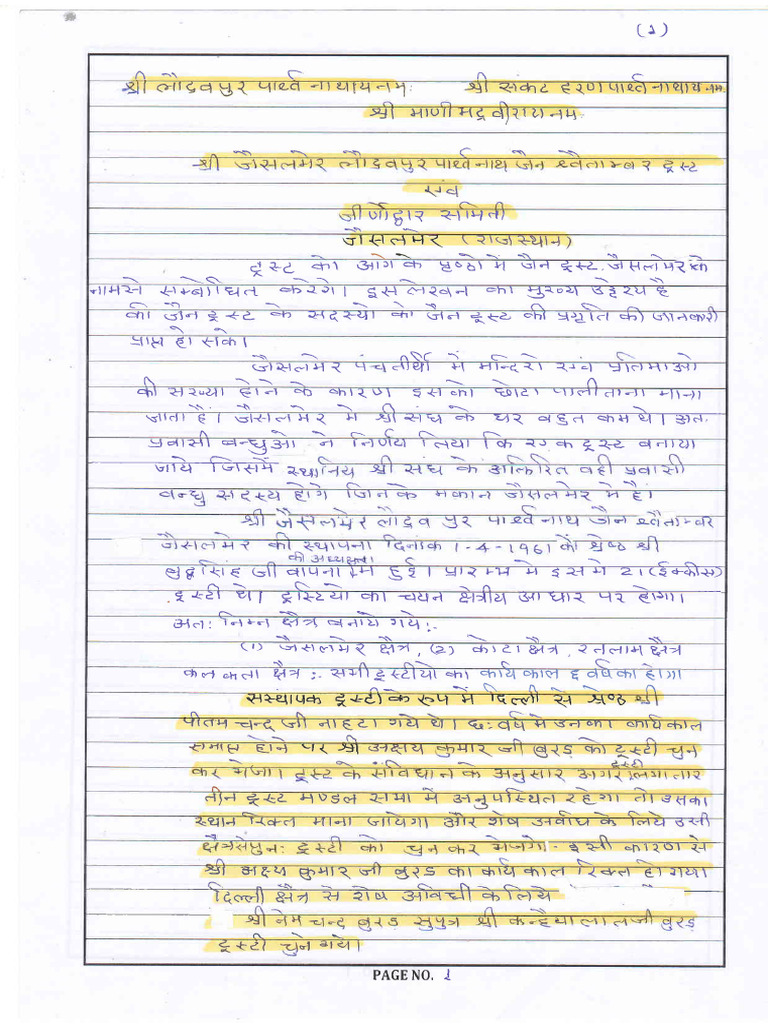 (1)
श्री लौद्रवपुर पार्श्व नाथाय नमः श्री संकट हरण पार्श्व नाथाय नमः
श्री माणीभद्रवीराय नमः
श्री जैसलमेर लौद्रवपुर पार्श्वनाथ जैन श्वैताम्बर ट्रस्ट
एंव
जीर्णोद्वार समिती
जैसलमेर (राजस्थान)
ट्रस्ट को आगे के पृष्ठो में जैन ट्रस्ट, जैसलमेर के
नाम से सम्बोधित करेगे। इस लेखन का मुख्य उद्देश्य है
की जैन ट्रस्ट के सदस्यो को जैन ट्रस्ट की प्रगृति की जानकारी
प्राप्त हो सके।
जैसलमेर पंचतीर्थी में मन्दिरो एवं प्रतिमाओ
की सख्या होने के कारण इसको छोटा पालीताना माना
जाता है। जैसलमेर मे श्री संघ के घर बहुत कम थे। अत.
प्रवासी बन्धुओ ने निर्णय लिया कि एक ट्रस्ट बनाया
जाये जिसमें स्थानिय श्री संघ के अतिरित वही प्रवासी
बन्धु सदस्य होगे जिनके मकान जैसलमेर मे है।
श्री जैसलमेर लौद्रव पुर पार्श्व नाथ जैन श्वैताम्बर
जैसलमेर की स्थापना दिनांक 1-4-1961 को श्रेष्ठ श्री
की अध्यक्षता
बुद्धसिंह जी बापना मे हुई। प्रारम्भ मे इसमे 21 (ईक्कीस)
ट्रस्टी थे। ट्रस्टियो का चयन क्षेत्रीय आधार पर होगा।
अतः निम्न क्षैत्र बनाये गये:-
(1) जैसलमेर क्षैत्र, (2) कोटा क्षैत्र, रतलाम क्षैत्र
कलकता क्षैत्र :- सभी ट्रस्टीयो का कार्यकाल 6 वर्ष का होगा
सस्थापक ट्रस्टी के रुप में दिल्ली से श्रेष्ठ श्री
पीतम चन्द जी नाहटा गये थे। छः वर्ष मे उनका कार्यकाल
समाप्त होने पर श्री अक्षय कुमार जी बुरड़ को ट्रस्टी चुन
ट्रस्टी
कर भेजा। ट्रस्ट के संविधान के अनुसार अगर लगातार
तीन ट्रस्ट मण्डल सभा में अनुपस्थित रहेगा तो उसका
स्थान रिक्त माना जायेगा और शेष अवधि के लिये उसी
क्षैत्र से पुनः ट्रस्टी को चुन कर भेजगे. इसी कारण से
श्री अक्षय कुमार जी बुरड़ का कार्य काल रिक्त हो गया
दिल्ली क्षैत्र से शेष अविधी के लिये
श्री नेम चन्द बुरड़ सुपुत्र श्री कन्हैया लालजी बुरड़
ट्रस्टी चुने गये।
PAGE NO. 1